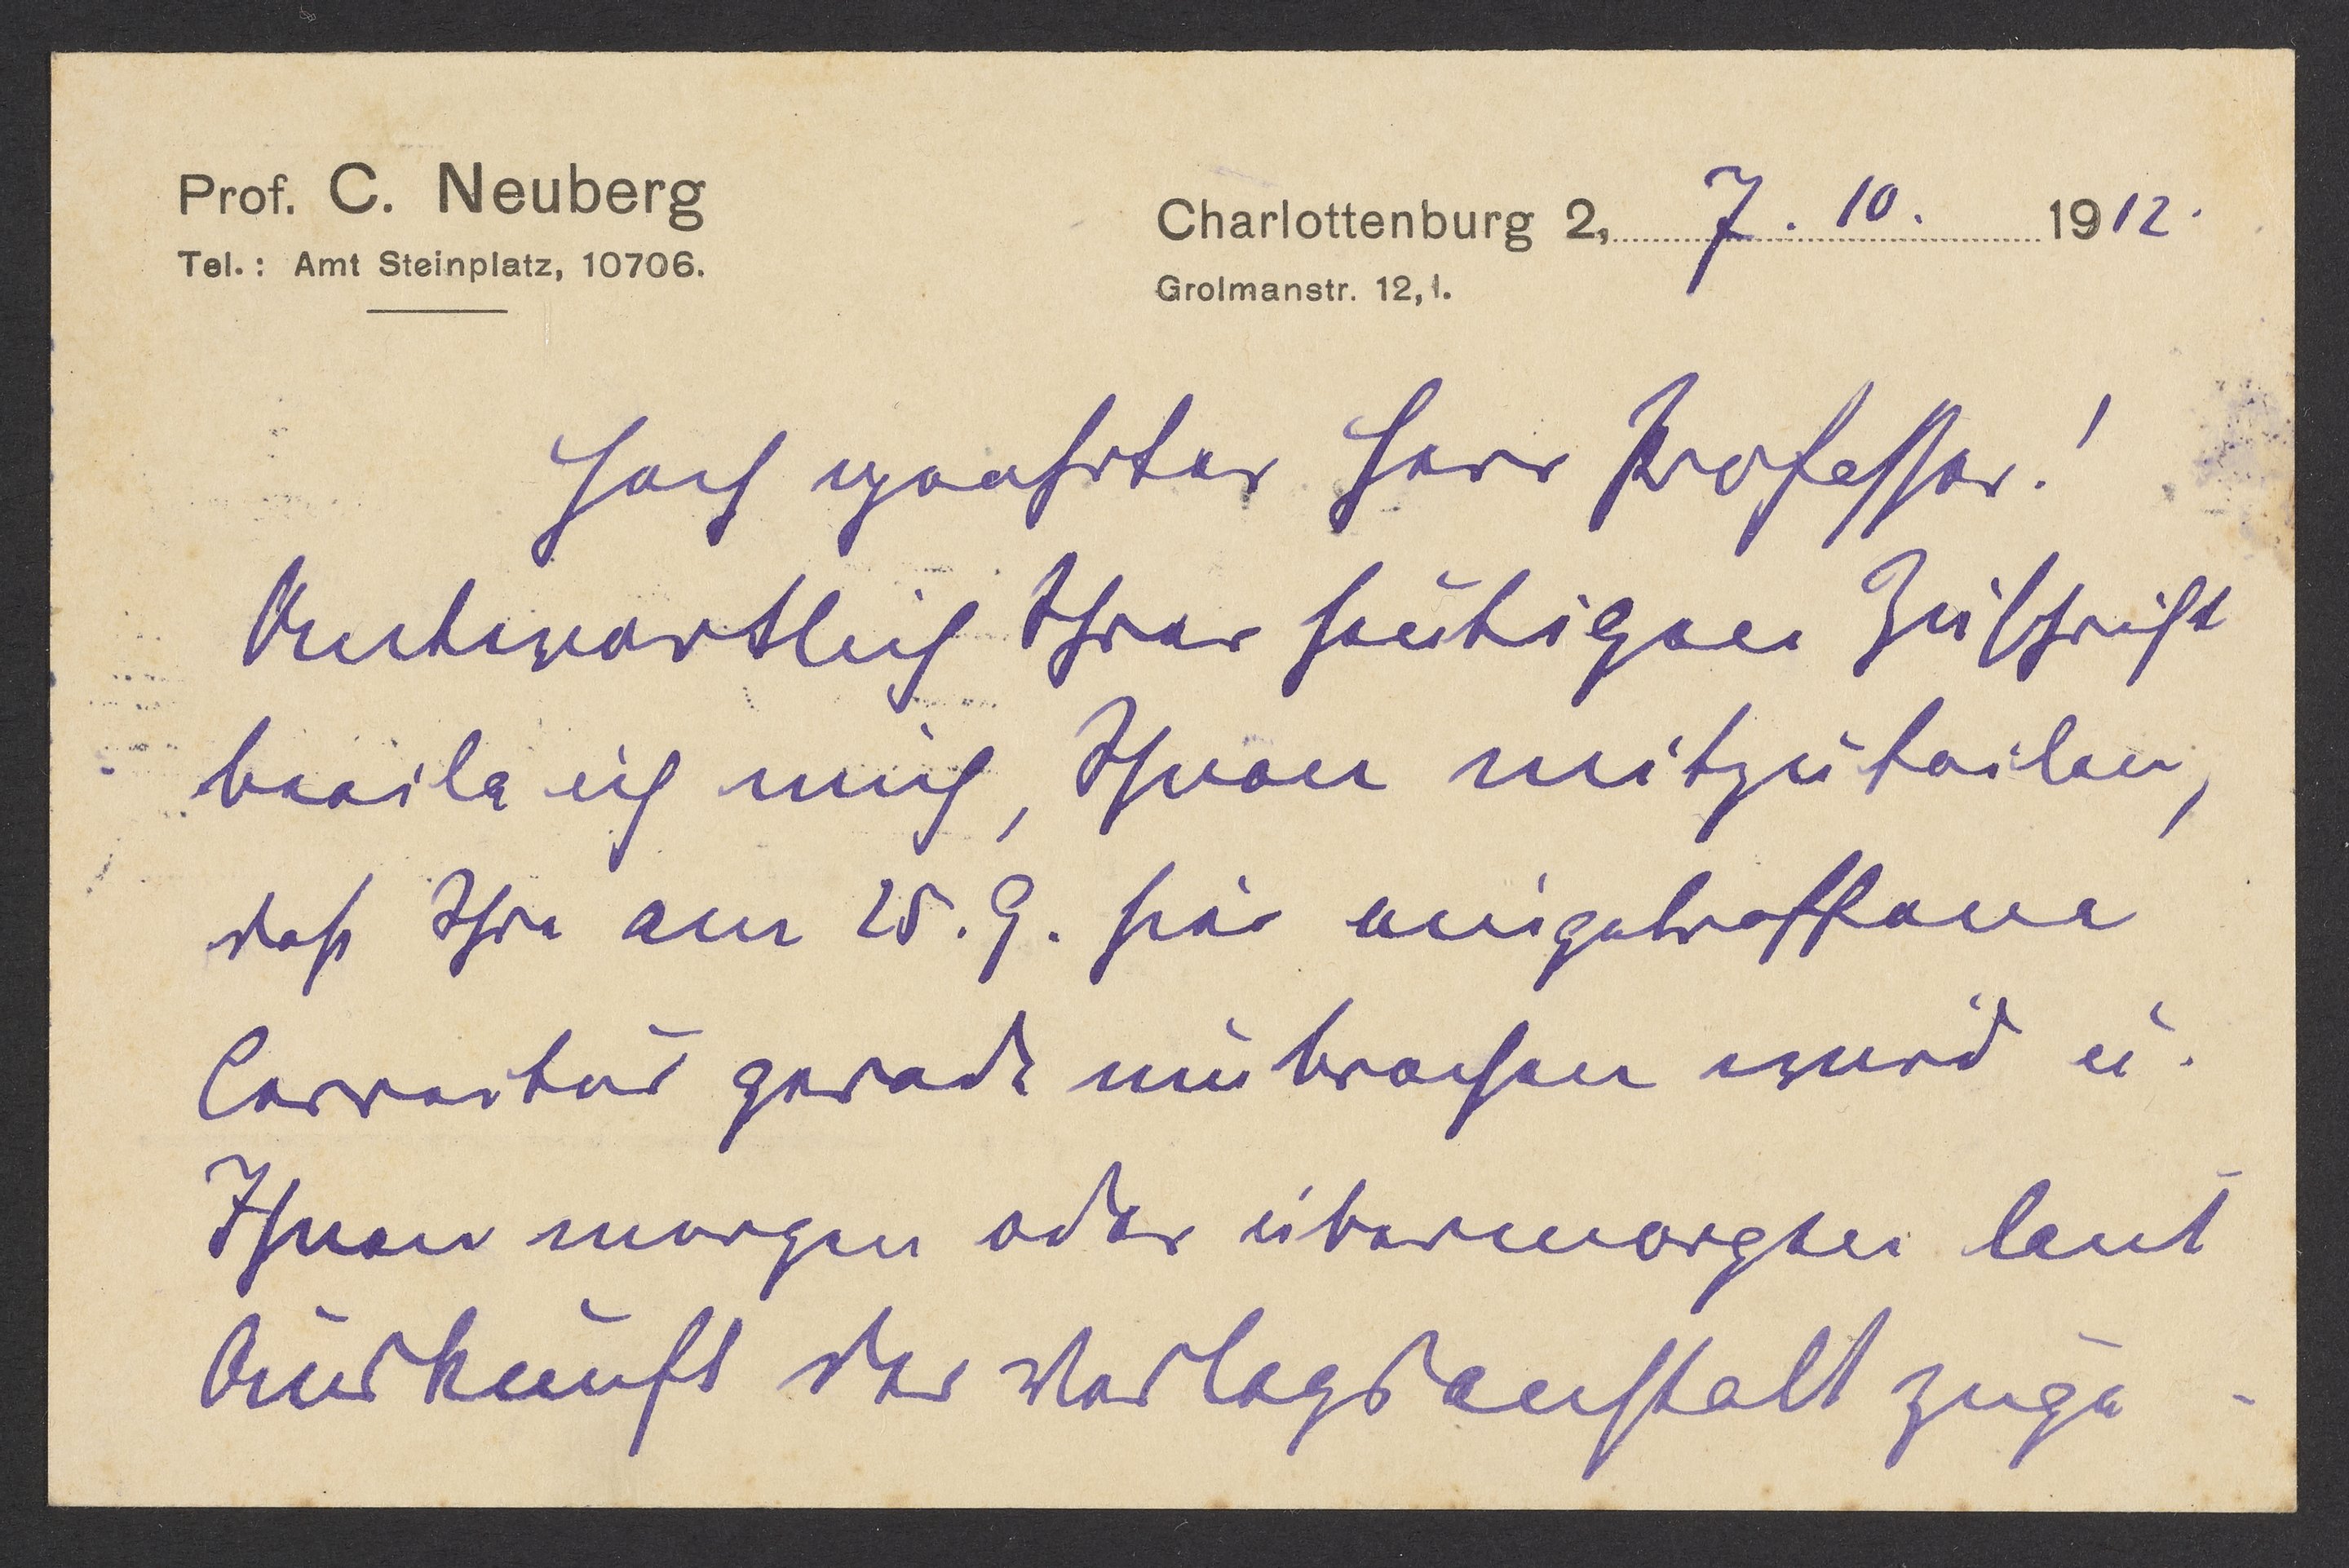 Prof. C. Neuberg
Tel.: Amt Steinplatz, 10706.
Charlottenburg 2, 7. 10. 1912.
Grolmanstr. 12, I.
Hoch geehrter Herr Professor!
Antwortlich Ihrer heutigen Zuschrift
beeile ich mich, Ihnen mitzuteilen,
daß Ihre am 25. 9. hier eingetroffene
Correctur gerade umbrochen wird u.
Ihnen morgen oder übermorgen laut
Auskunft der Verlagsanstalt zuge-